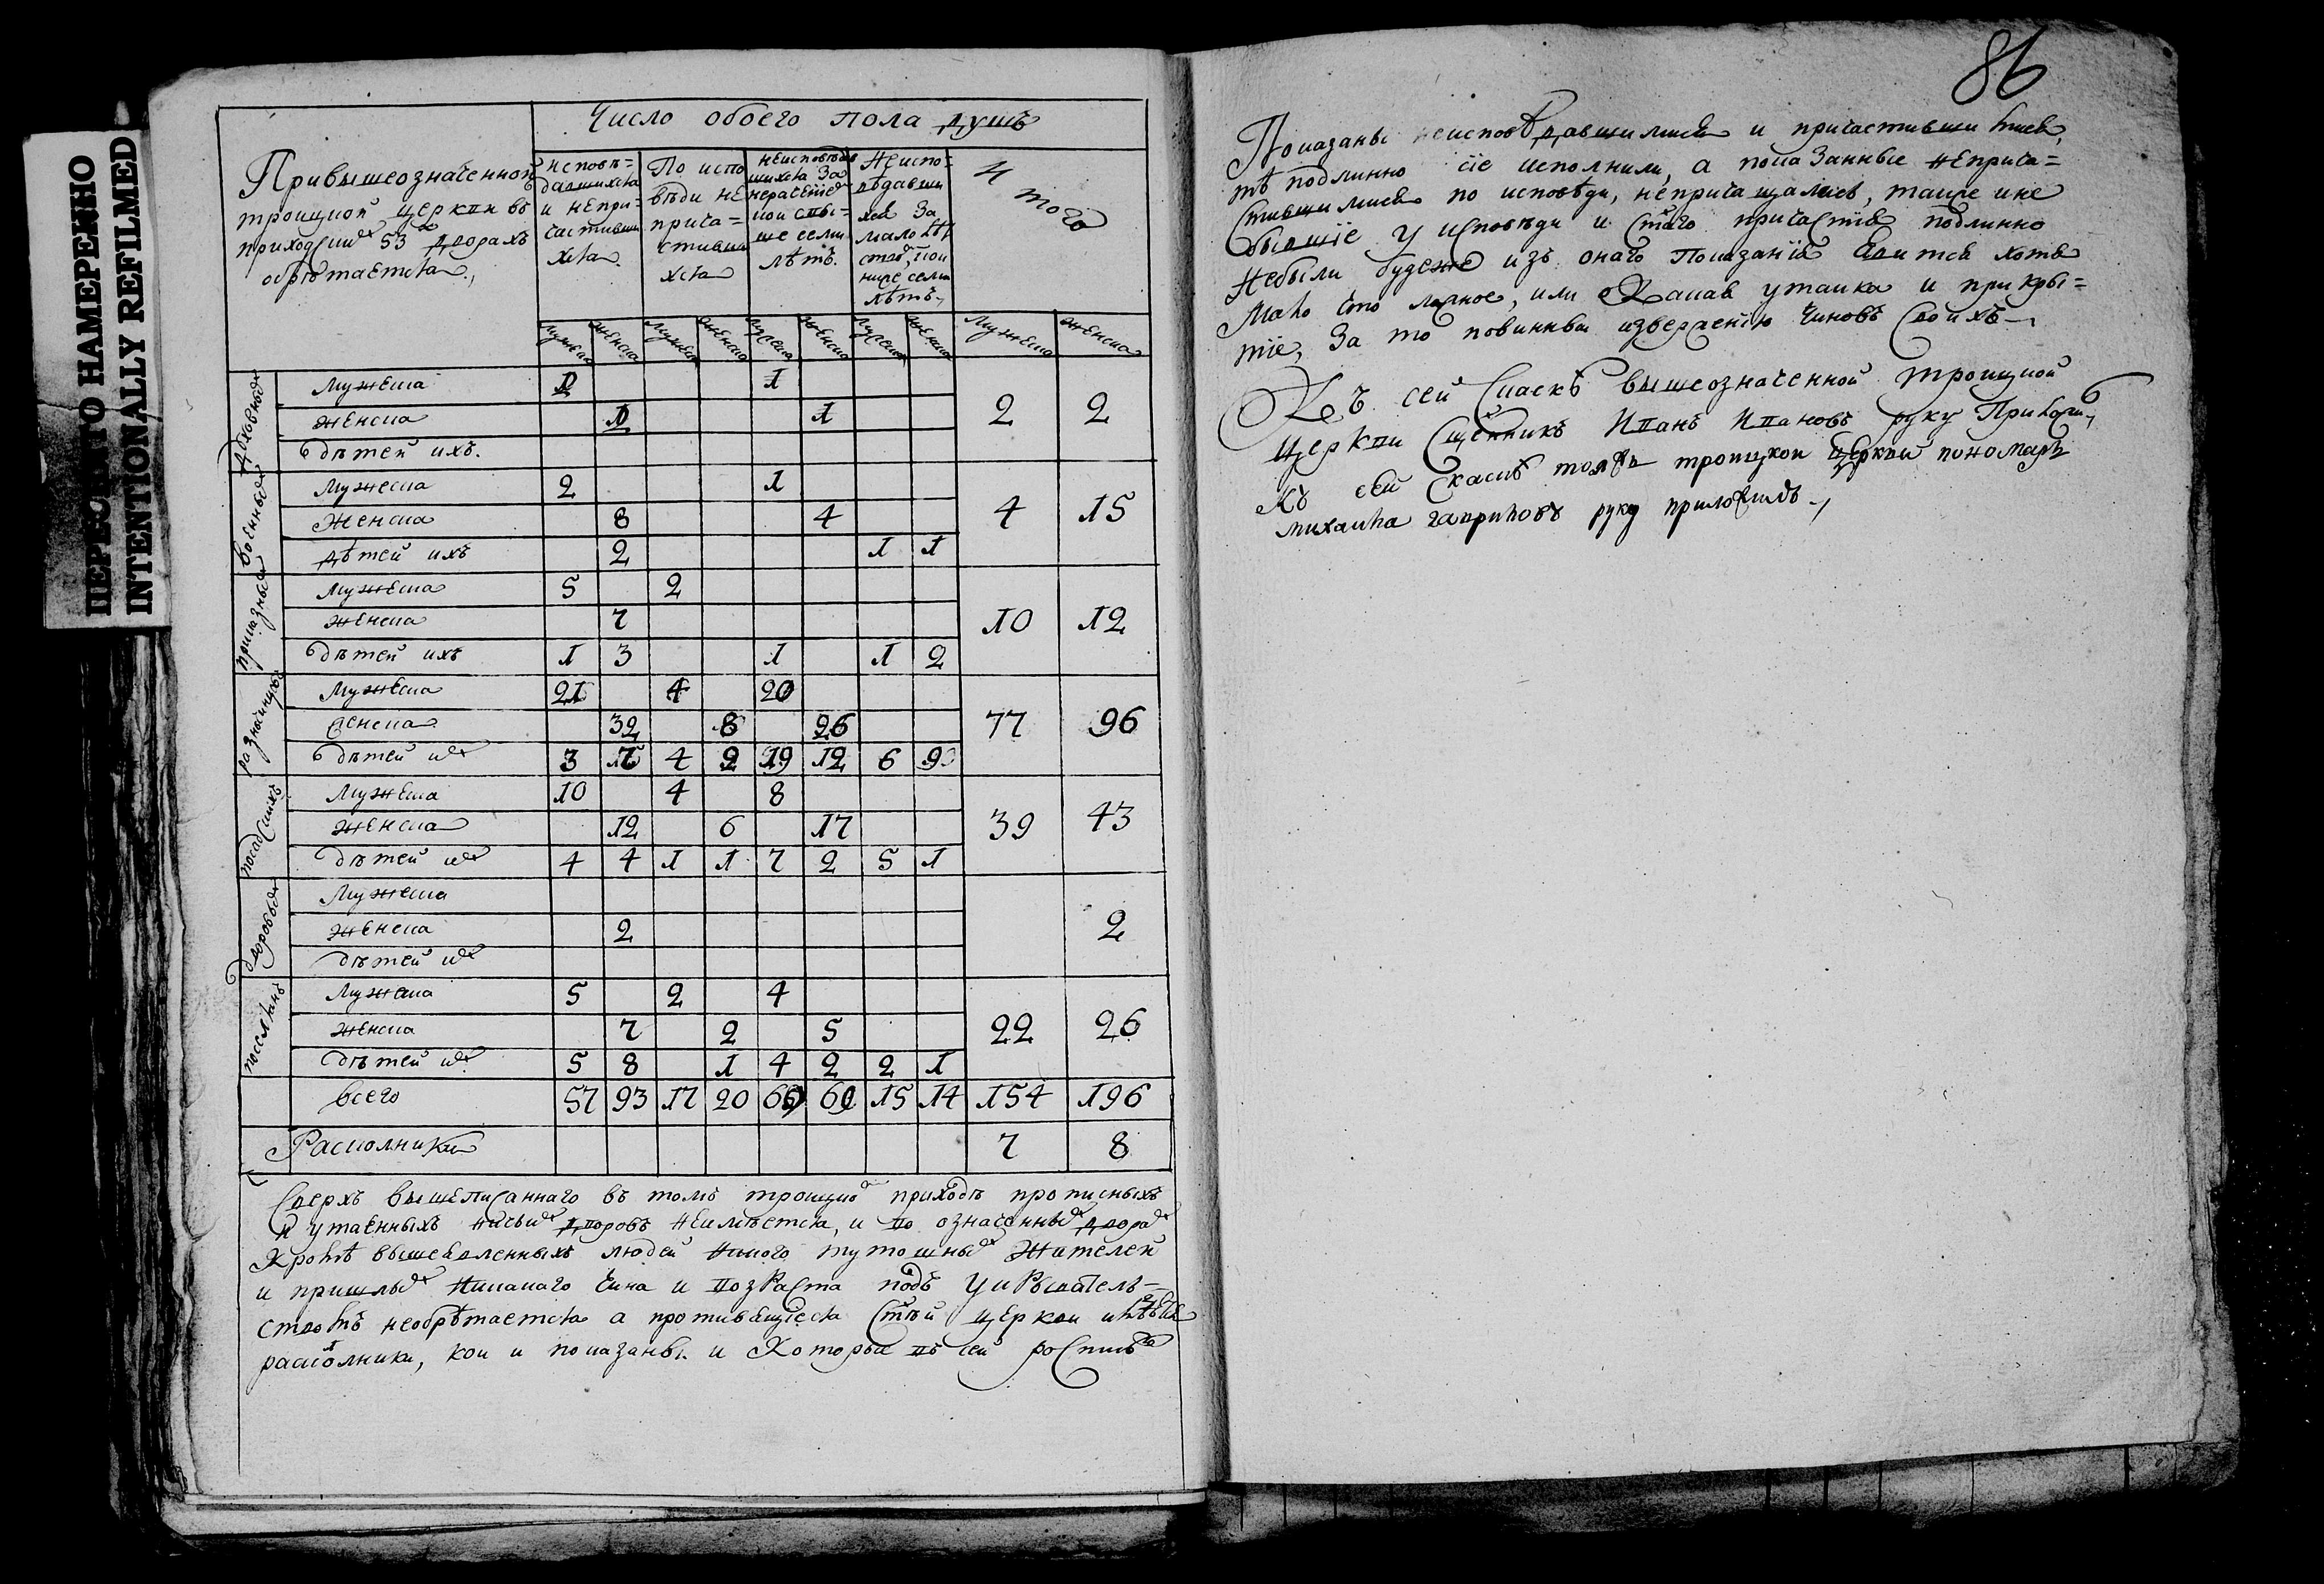 ПЕРЕСНЯТО НАМЕРЕННО
INTENTIONALLY REFILMED
86
Число обоего пола душъ
Привышеозначенной
троицкой церкви въ
приходскихъ 53 дворахъ
обрѣтается
исповѣ=
давшихся
и непри=
частивши
хся
По испо
вѣди не
прича=
стивши
хся
неисповѣдав
шихся за
нерачениемъ
кои свы=
ше семи
лѣтъ
Неиспо=
вѣдавши
хся за
малолѣт
ствомъ, кои
ниже семи
лѣтъ
И того
мужеска женска мужеска женска мужеска женска мужеска женска мужеска женска
духовныхъ
мужеска 1 1
женска 1 1 2 2
дѣтей ихъ.
военныхъ
мужеска 2 1
женска 8 4 4 15
дѣтей ихъ 2 1 1
приказныхъ
мужеска 5 2
женска 7 10 12
дѣтей ихъ 1 3 1 1 2
разночинцовъ
мужеска 21 4 20
женска 32 8 26 77 96
дѣтей ихъ 3 4 2 19 12 6 9
посадскихъ
мужеска 10 4 8
женска 12 6 17 39 43
дѣтей ихъ 4 4 1 1 7 2 5 1
дворовыхъ
мужеска
женска 2 2
дѣтей ихъ
поселянъ
мужеска 5 2 4
женска 7 2 5 22 26
дѣтей ихъ 5 8 1 4 2 2 1
всего 57 93 17 20 15 14 154 196
Раскольники 7 8
Сверхъ вышеписаннаго въ томъ троицкомъ приходѣ прописныхъ
и утаенныхъ дворовъ неимѣется, и во означенныхъ дворахъ
кромѣ вышеявленныхъ людей никого тутошныхъ жителей
и пришлыхъ никакаго чина и возраста подъ укрыватель=
ствомъ необрѣтается а противящиеся стѣй церкви
раскольники, кои и показаны и которыи въ сей росписѣ
Показаны неисповѣдавшимися и причастившимися,
тѣ подлинно сіе исполнили, а показанные неприча=
стившимися по исповѣди, непричащались, также и не
бывшіе у исповѣди и стаго причастія подлинно
небыли буде же изъ онаго показанія явится хотя
мало что ложное, или какая утайка и прикры=
тіе, за то повинны извержению чиновъ своихъ
Къ сей скаскѣ вышеозначенной троицкой
церкви сщенникъ Иванъ Ивановъ руку приложи
Къ сей скаскѣ тоя троицкои церкви пономарь
михаила гавриловъ руку приложилъ